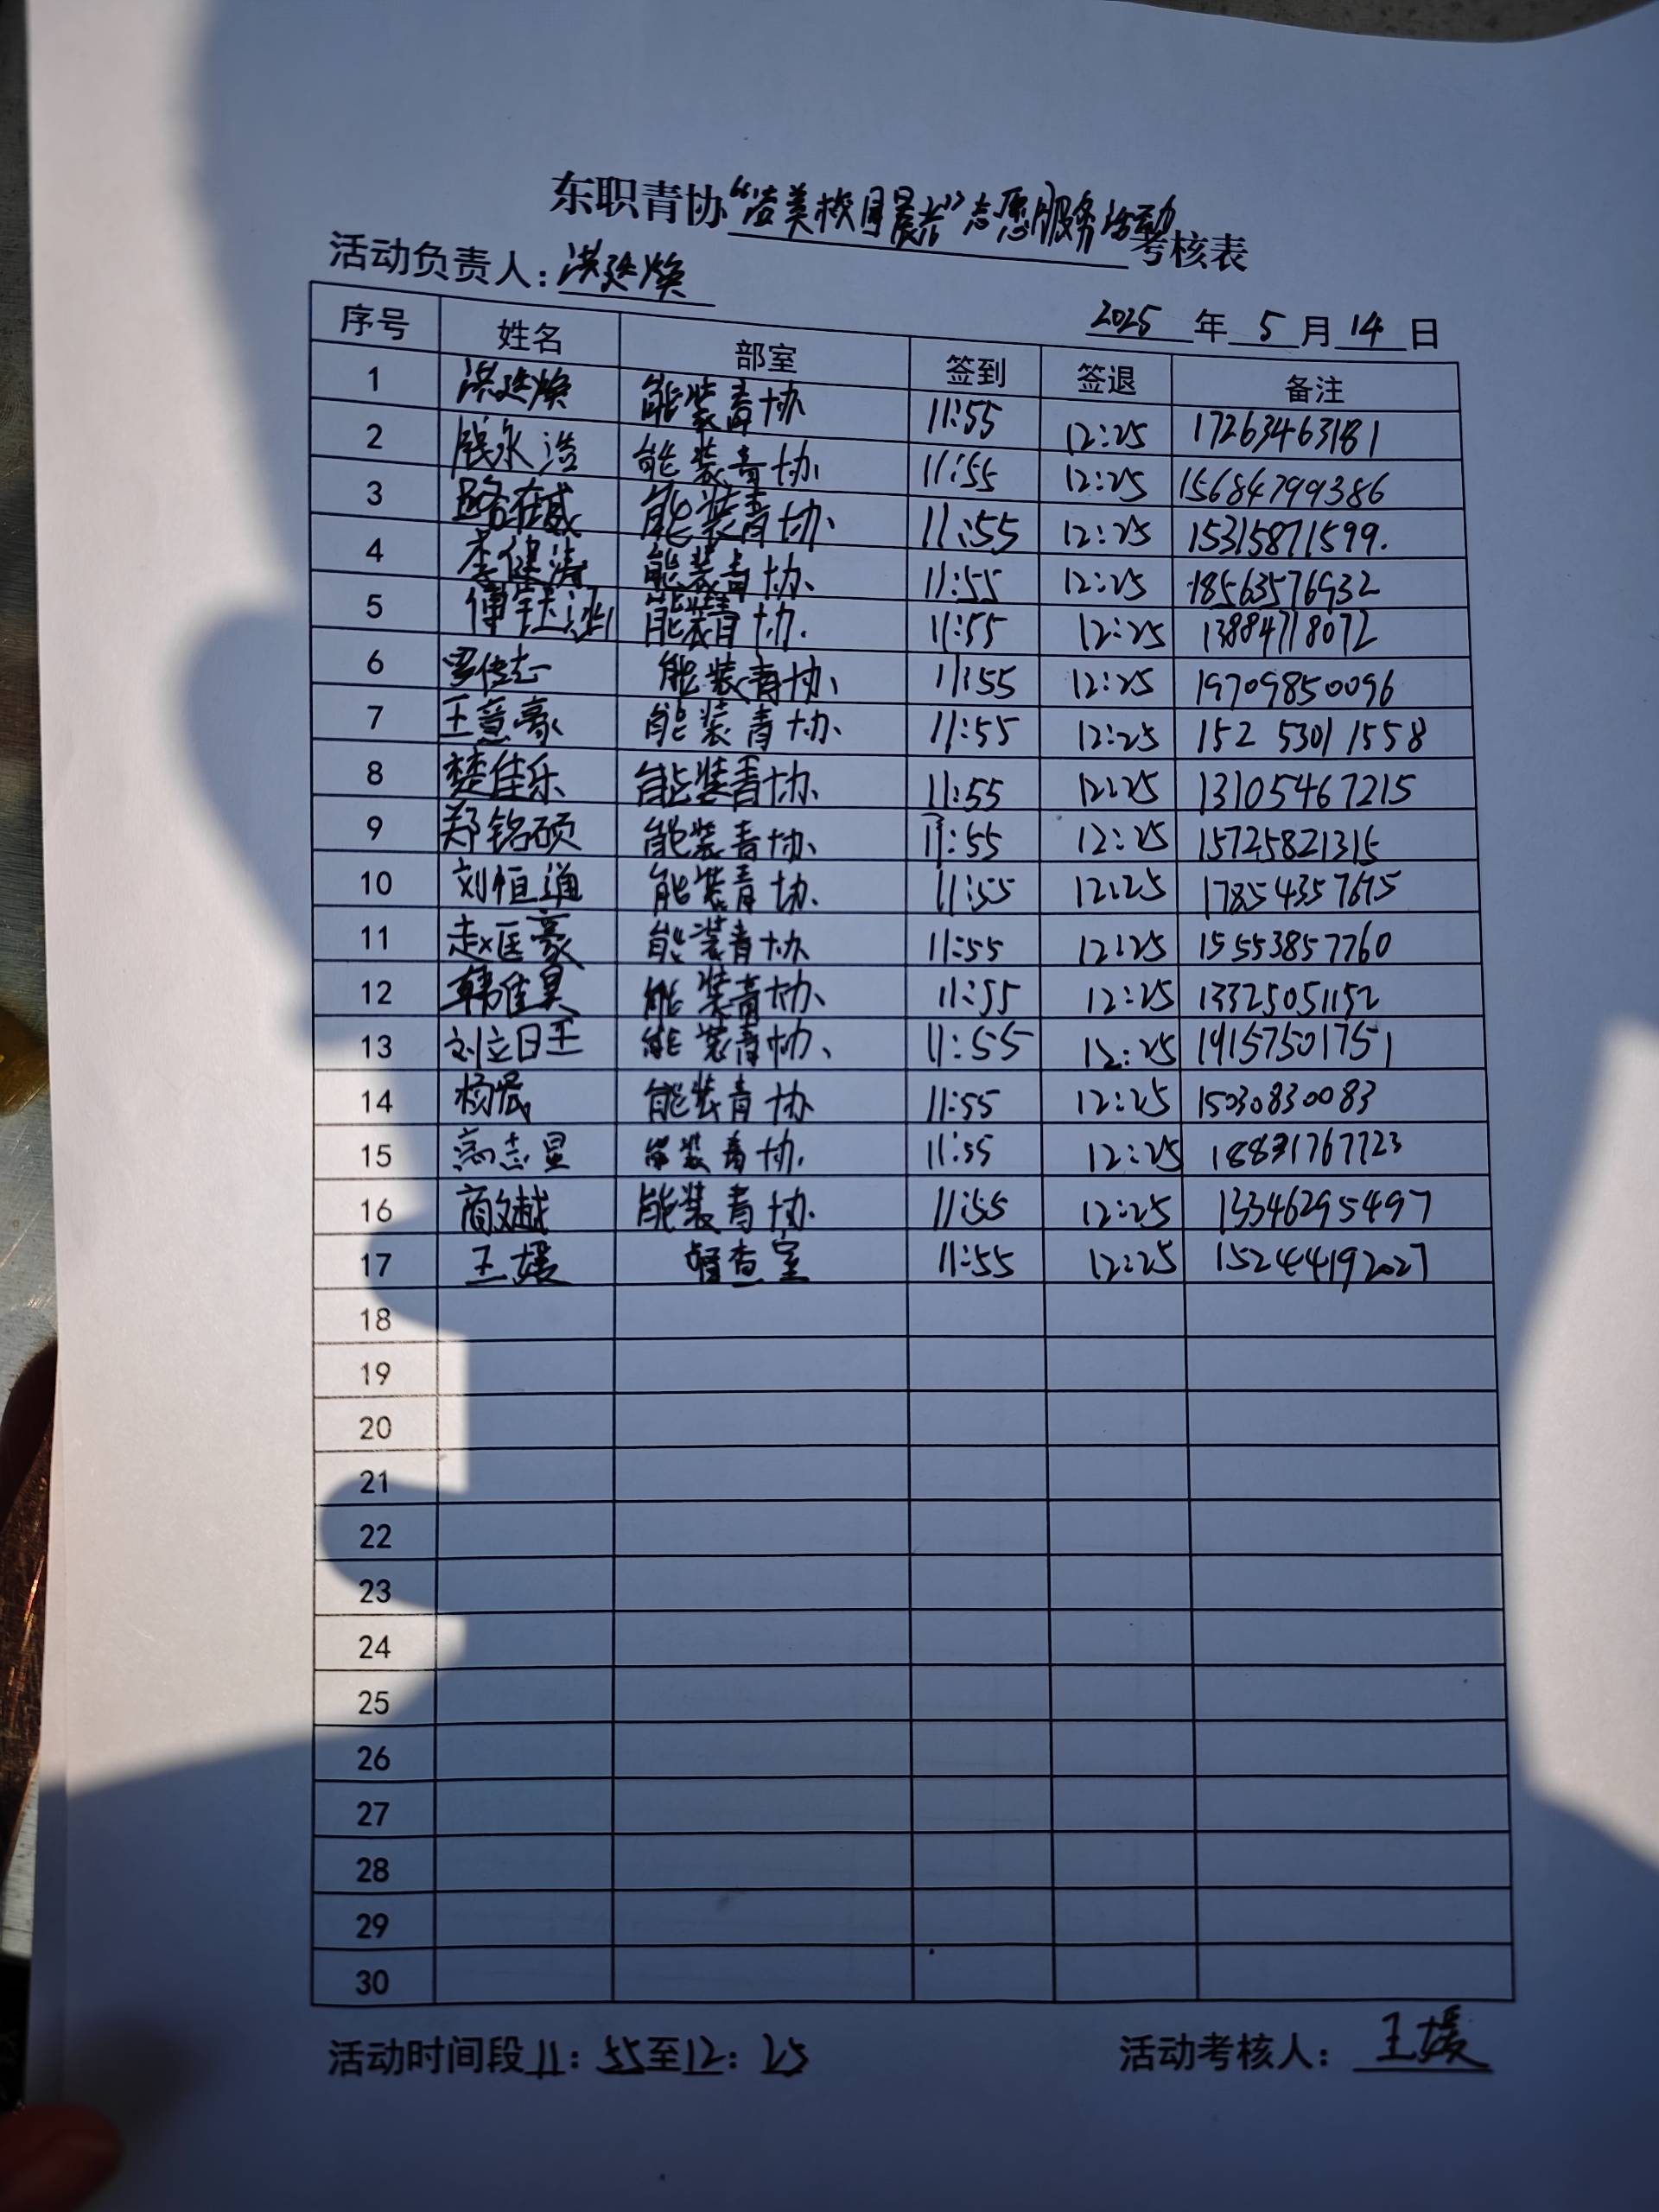 东职青协“洁美校园晨光”志愿服务活动考核表
活动负责人：洪延焕
2025年5月14日
序号 姓名 部室 签到 签退 备注
1 洪延焕 能装青协 11:55 12:25 17263463181
2 钱永浩 能装青协 11:55 12:25 15684799386
3 路在威 能装青协 11:55 12:25 15315871599
4 李健涛 能装青协 11:55 12:25 18563576932
5 傅钰 能装青协 11:55 12:25 13884718072
6 罗佳志 能装青协 11:55 12:25 19709850096
7 王意豪 能装青协 11:55 12:25 152 5301 1558
8 楚佳乐 能装青协 11:55 12:25 13105467215
9 郑铭硕 能装青协 11:55 12:25 15725821315
10 刘恒通 能装青协 11:55 12:25 17854357675
11 赵匡豪 能装青协 11:55 12:25 15553857760
12 韩佳昊 能装青协 11:55 12:25 13325051152
13 刘立日王 能装青协 11:55 12:25 19157501751
14 杨宸 能装青协 11:55 12:25 15030830083
15 高志显 能装青协 11:55 12:25 18831767723
16 商文越 能装青协 11:55 12:25 13346295497
17 王媛 督查室 11:55 12:25 15244192027
18
19
20
21
22
23
24
25
26
27
28
29
30
活动时间段11：55至12：25 活动考核人：王媛